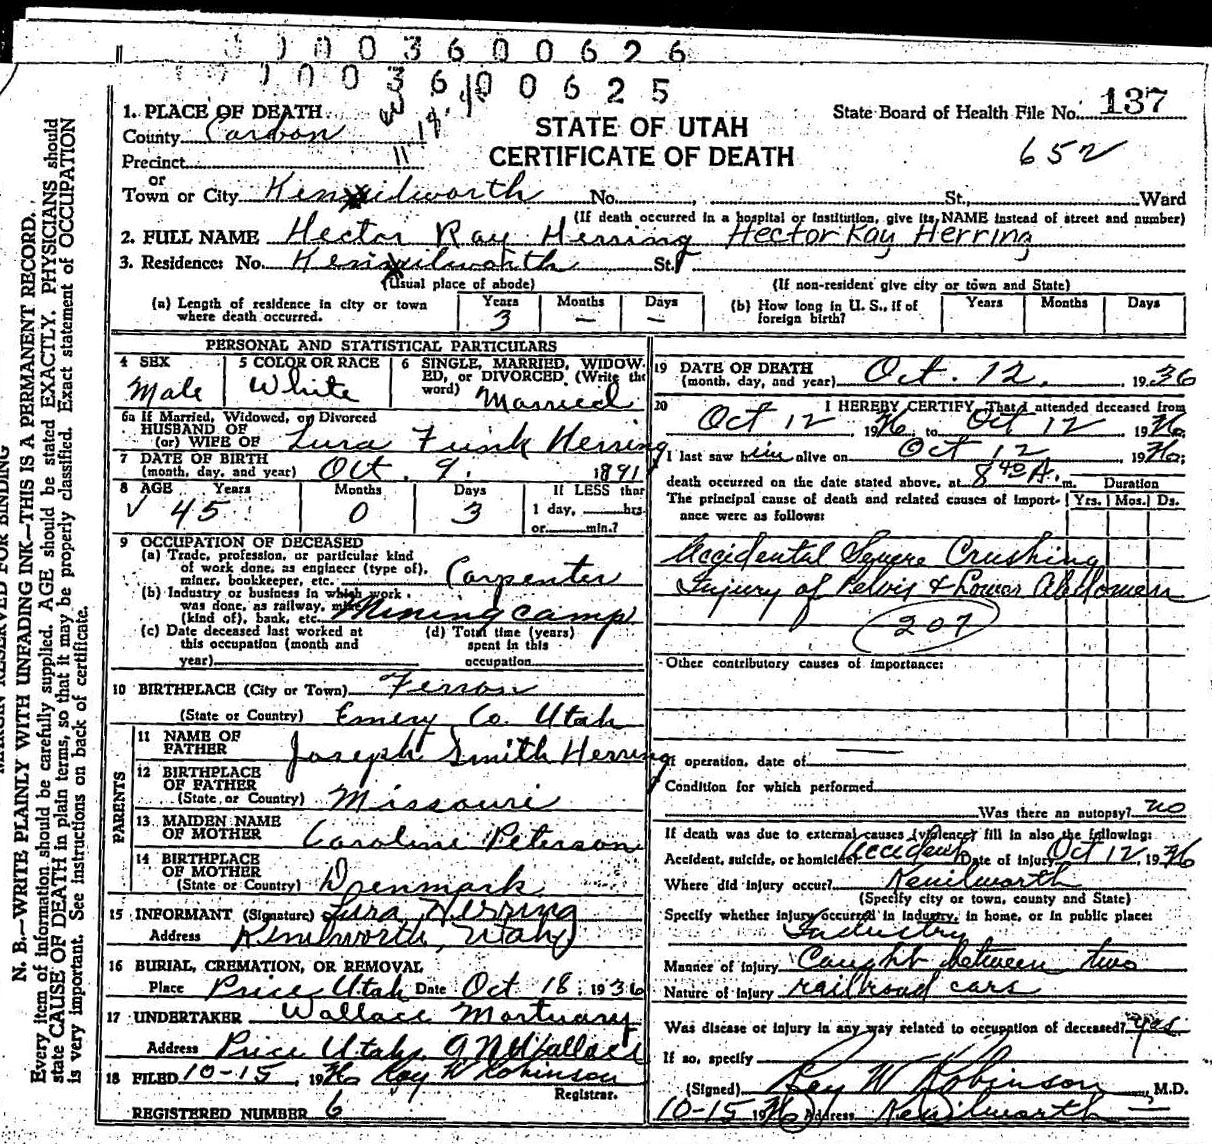 0 0 0 3 6 0 0 6 2 6
0 0 0 3 6 0 0 6 2 5
1. PLACE OF DEATH
County Carbon
Precinct
or
Town or City Kenilworth No. St., Ward
STATE OF UTAH
CERTIFICATE OF DEATH
State Board of Health File No. 137
652
(If death occurred in a hospital or institution, give its NAME instead of street and number)
2. FULL NAME Hector Ray Herring Hector Ray Herring
3. Residence: No. Kenilworth St.
(Usual place of abode) (If non-resident give city or town and State)
(a) Length of residence in city or town where death occurred. Years 3 Months — Days —
(b) How long in U. S., if of foreign birth? Years Months Days
PERSONAL AND STATISTICAL PARTICULARS
4 SEX Male
5 COLOR OR RACE White
6 SINGLE, MARRIED, WIDOWED, or DIVORCED (Write the word) Married
6a If Married, Widowed, or Divorced
HUSBAND OF
(or) WIFE OF Lura Funk Herring
7 DATE OF BIRTH
(month, day, and year) Oct. 9. 1891
8 AGE Years Months Days If LESS than
45 0 3 1 day, hrs.
or min.?
9 OCCUPATION OF DECEASED
(a) Trade, profession, or particular kind
of work done, as engineer (type of),
miner, bookkeeper, etc. Carpenter
(b) Industry or business in which work
was done, as railway, mine
(kind of), bank, etc. Mining camp
(c) Date deceased last worked at
this occupation (month and
year)
(d) Total time (years)
spent in this
occupation
10 BIRTHPLACE (City or Town) Ferron
(State or Country) Emery Co. Utah
PARENTS
11 NAME OF
FATHER Joseph Smith Herring
12 BIRTHPLACE
OF FATHER
(State or Country) Missouri
13 MAIDEN NAME
OF MOTHER Caroline Peterson
14 BIRTHPLACE
OF MOTHER
(State or Country) Denmark
15 INFORMANT (Signature) Lura Herring
Address Kenilworth, Utah
16 BURIAL, CREMATION, OR REMOVAL
Place Price Utah Date Oct 18. 1936
17 UNDERTAKER Wallace Mortuary
Address Price Utah. Wallace
18 FILED 10-15, 1936 Ray W Robinson
Registrar.
REGISTERED NUMBER 6
19 DATE OF DEATH
(month, day, and year) Oct. 12. 1936
20 I HEREBY CERTIFY, That I attended deceased from
Oct 12 1936, to Oct 12 1936
I last saw him alive on Oct 12 1936;
death occurred on the date stated above, at 8 40 A. m. Duration
The principal cause of death and related causes of importance were as follows: Yrs. Mos. Ds.
Accidental Severe Crushing
Injury of Pelvis & Lower Abdomen
207
Other contributory causes of importance:
If operation, date of
Condition for which performed
Was there an autopsy? no
If death was due to external causes (violence) fill in also the following:
Accident, suicide, or homicide? Accident Date of injury Oct 12, 1936
Where did injury occur? Kenilworth
(Specify city or town, county and State)
Specify whether injury occurred in industry, in home, or in public place:
Industry
Manner of injury Caught between two
Nature of injury railroad cars
Was disease or injury in any way related to occupation of deceased? yes
If so, specify
(Signed) Ray W Robinson, M.D.
10-15 1936 Address Kenilworth
MARGIN RESERVED FOR BINDING
N. B.—WRITE PLAINLY WITH UNFADING INK—THIS IS A PERMANENT RECORD.
Every item of information should be carefully supplied. AGE should be stated EXACTLY. PHYSICIANS should
state CAUSE OF DEATH in plain terms, so that it may be properly classified. Exact statement of OCCUPATION
is very important. See instructions on back of certificate.